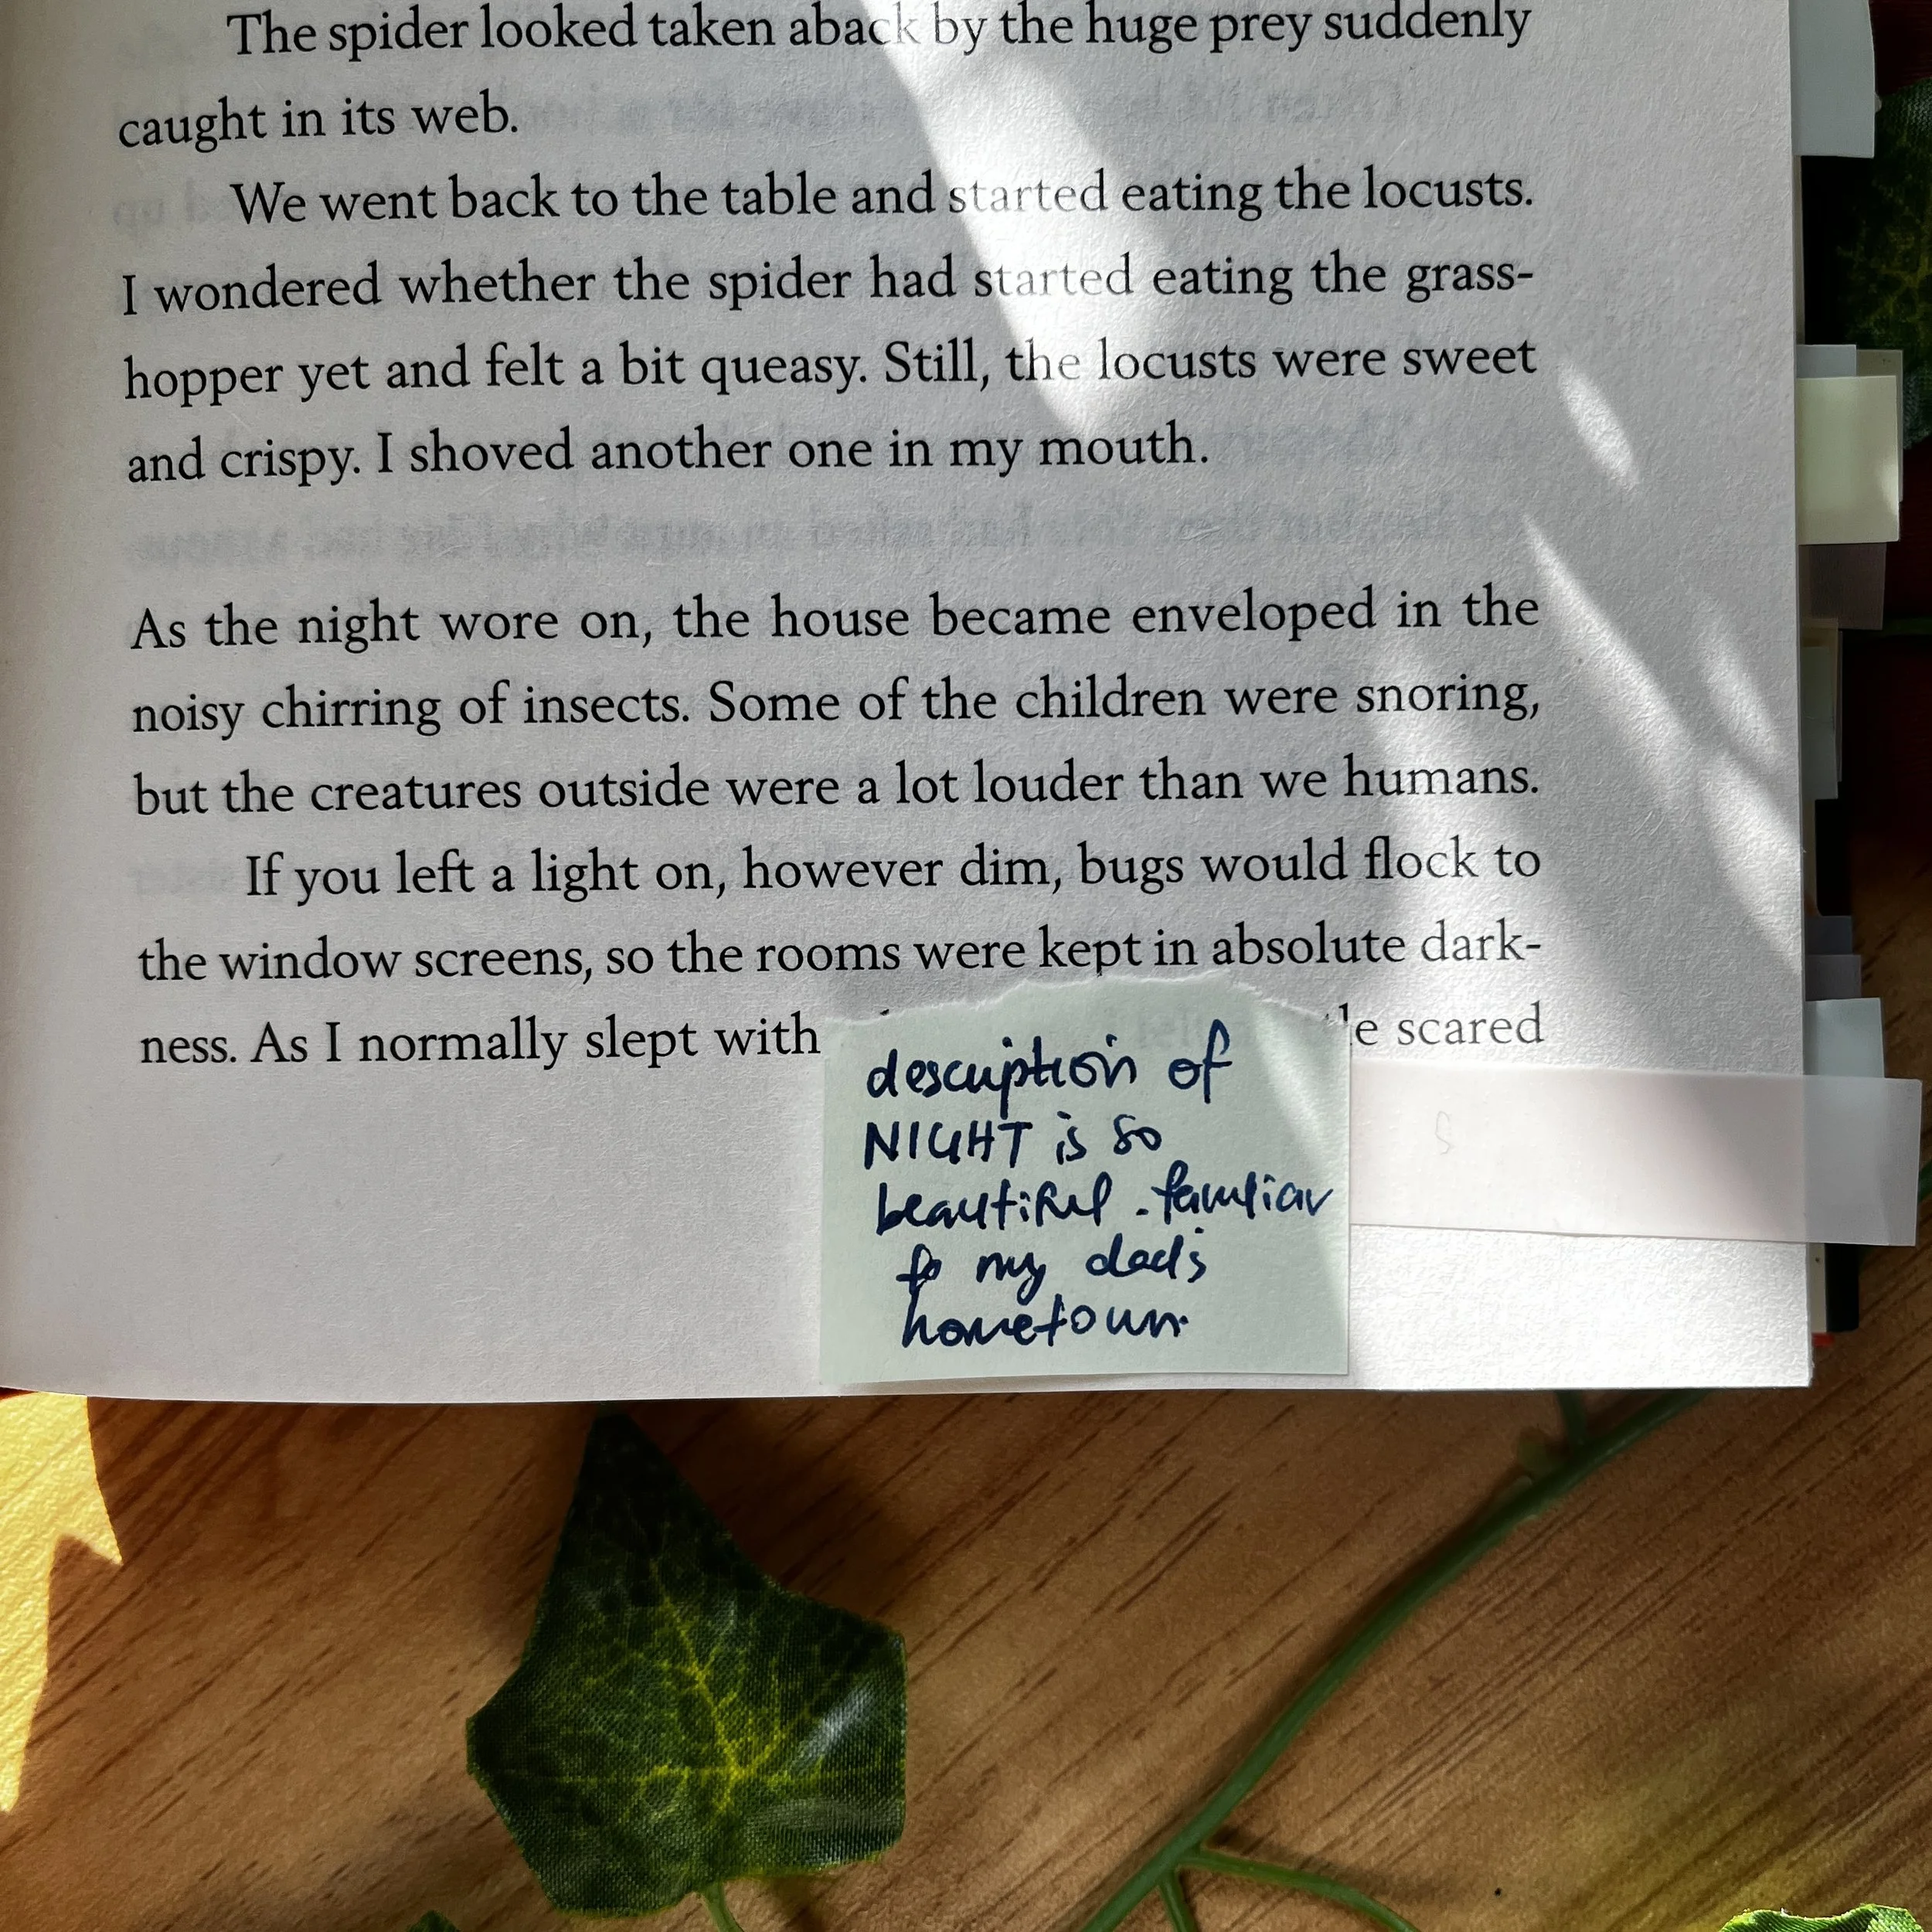 The spider looked taken aback by the huge prey suddenly
caught in its web.
We went back to the table and started eating the locusts.
I wondered whether the spider had started eating the grass-
hopper yet and felt a bit queasy. Still, the locusts were sweet
and crispy. I shoved another one in my mouth.
As the night wore on, the house became enveloped in the
noisy chirring of insects. Some of the children were snoring,
but the creatures outside were a lot louder than we humans.
If you left a light on, however dim, bugs would flock to
the window screens, so the rooms were kept in absolute dark-
ness. As I normally slept with scared
description of
NIGHT is so
beautiful. familiar
to my dad's
hometown.